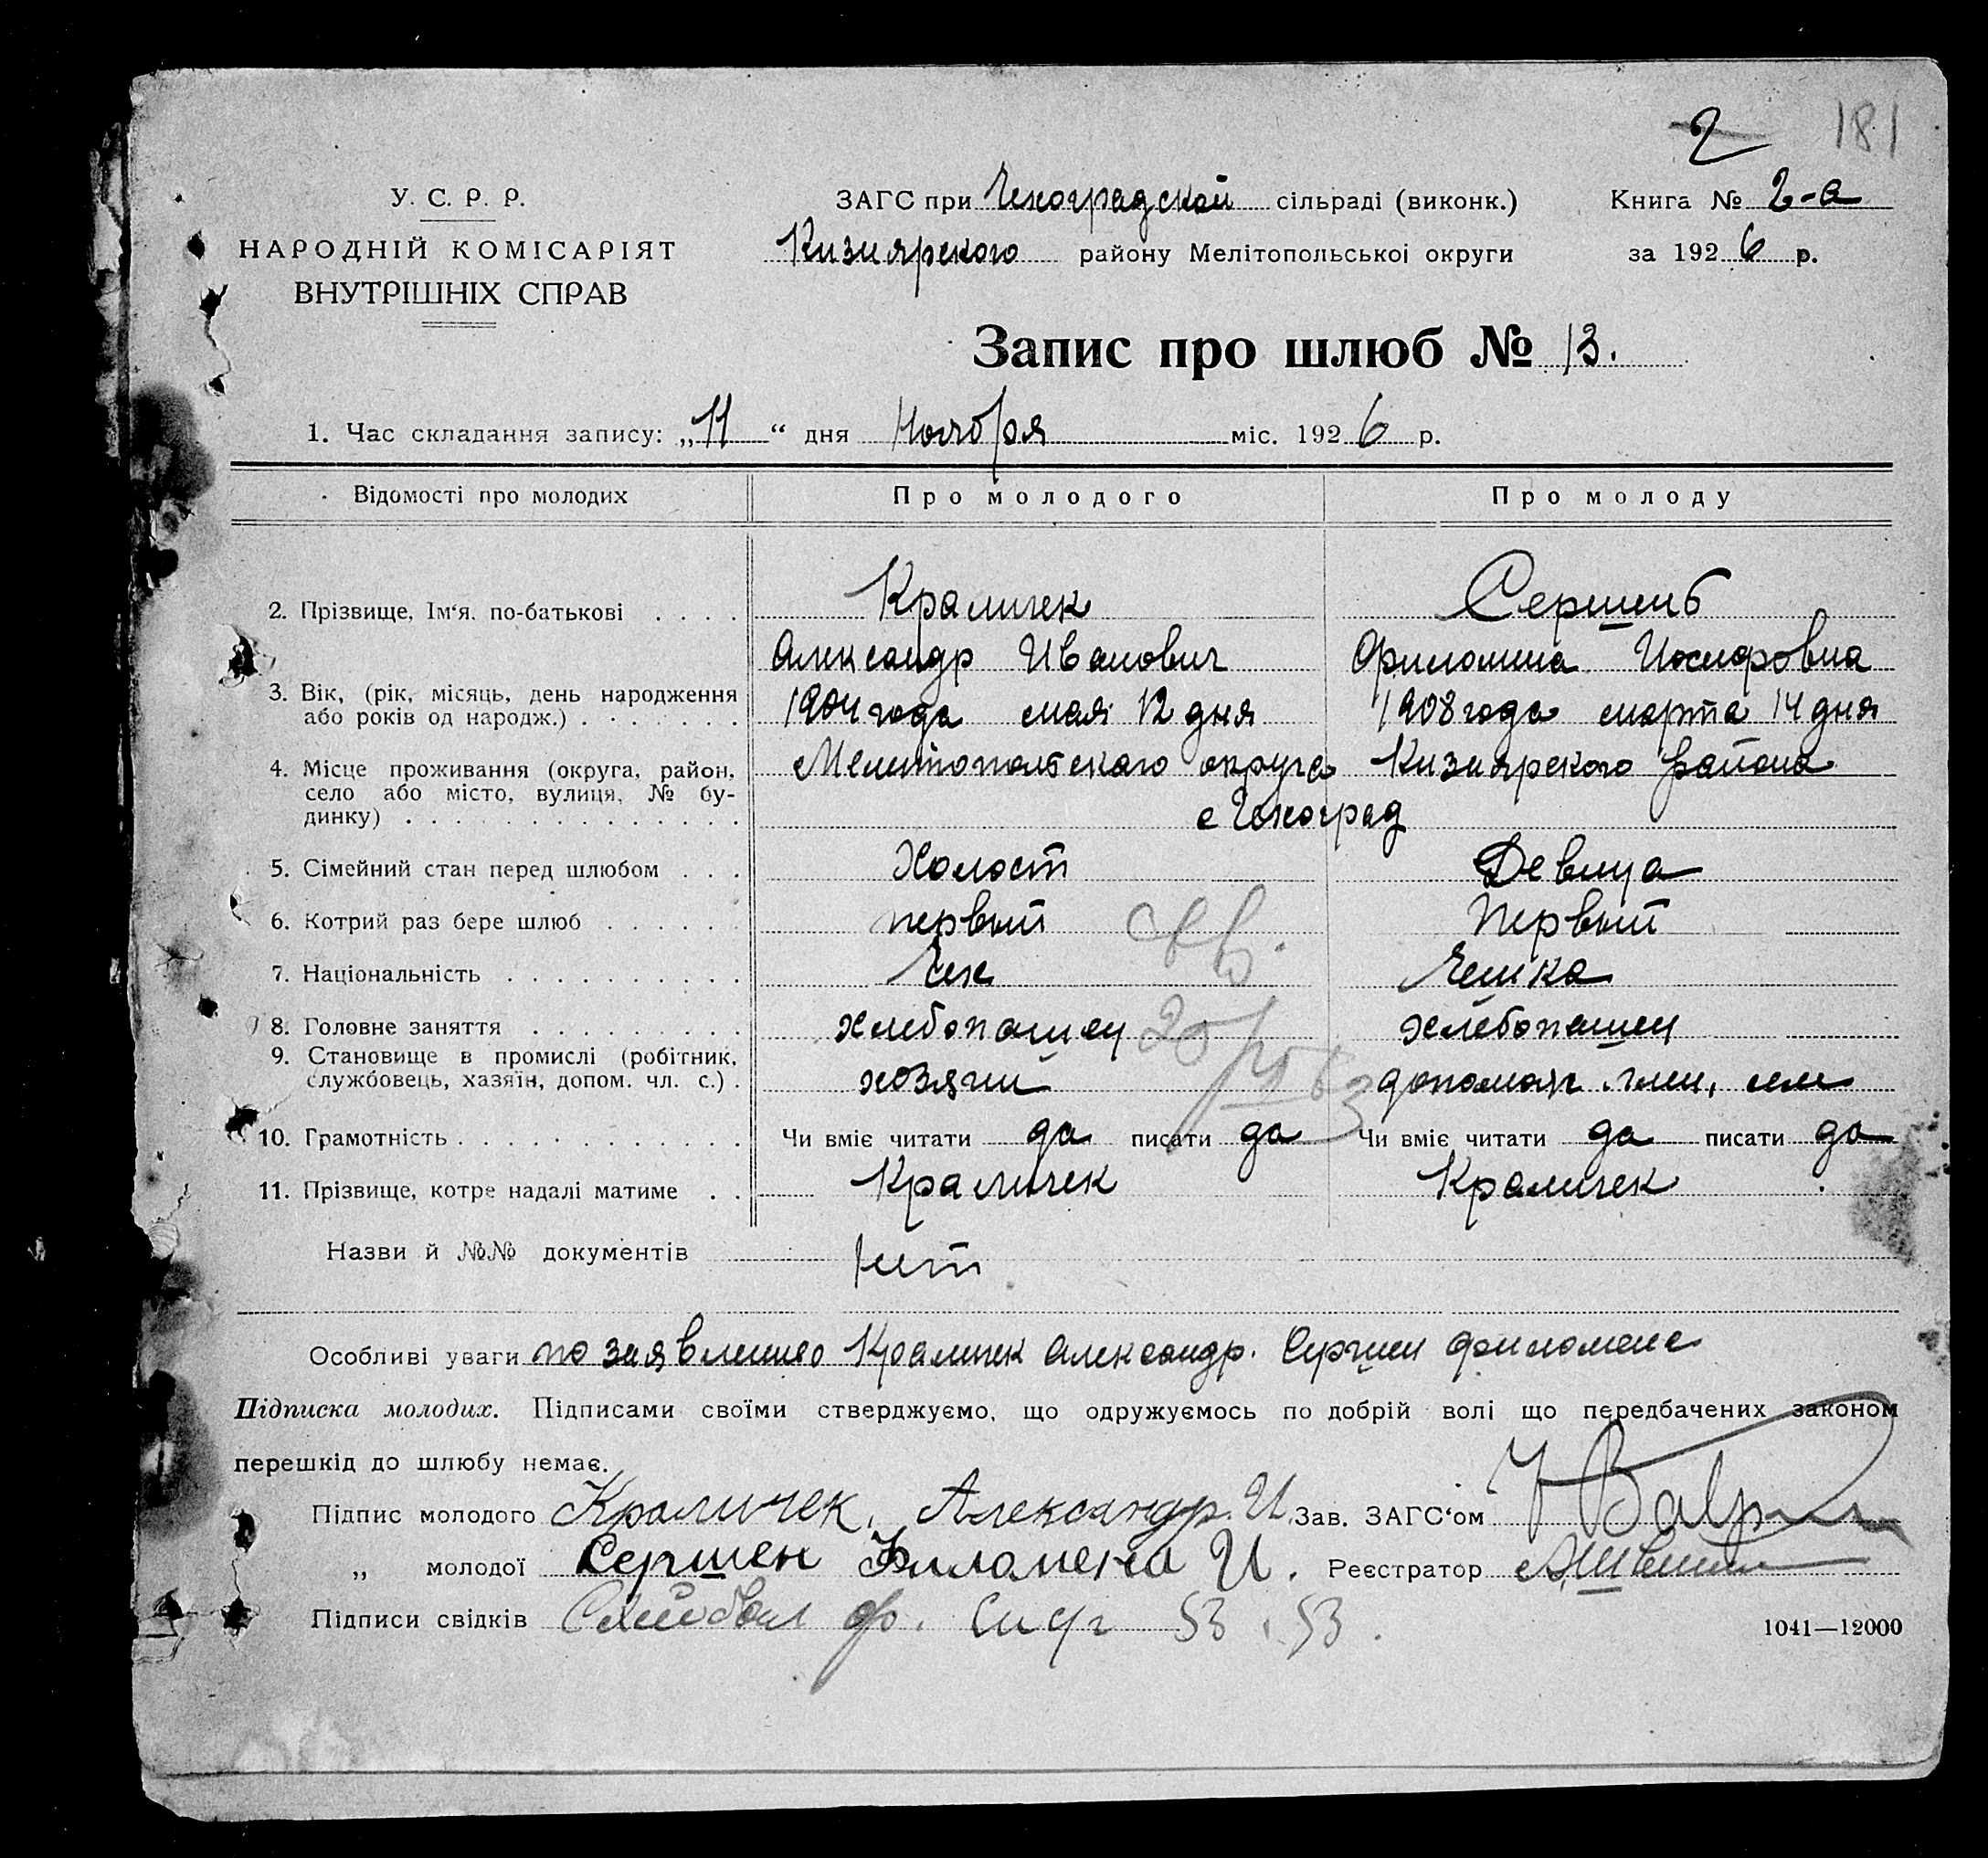 2 181
У. С. Р. Р.
НАРОДНІЙ КОМІСАРІЯТ
ВНУТРІШНІХ СПРАВ
ЗАГС при Чехоградской сільраді (виконк.)
Кизиярского району Мелітопольськоі округи
Книга № 2-а
за 1926 р.
Запис про шлюб № 13.
1. Час складання запису: „11“ дня Ноября міс. 1926 р.
Відомості про молодих Про молодого Про молоду
2. Прізвище, Ім‘я, по-батькові . . . . Краличек
Александр Иванович
Сершень
Филомина Иосифовна
3. Вік, (рік, місяць, день народження
або років од народж.) . . . . . . . 1904 года мая 12 дня 1908 года марта 14 дня
4. Місце проживання (округа, район,
село або місто, вулиця, № бу-
динку) . . . . . . . . . . . . . .
Мелитопольского округа Кизиярского района
с Чехоград
5. Сімейний стан перед шлюбом . . . Холост Девица
6. Котрий раз бере шлюб . . . . . . первый Первый
7. Національність . . . . . . . . . . Чех Чешка
8. Головне заняття . . . . . . . . . хлебопашец хлебопашец
9. Становище в промислі (робітник,
службовець, хазяїн, допом. чл. с.) . хозяин допомаг. член. сем
10. Грамотність . . . . . . . . . . . . Чи вміє читати да писати да Чи вміє читати да писати да
11. Прізвище, котре надалі матиме . . Краличек Краличек
Назви й №№ документів нет
Особливі уваги по заявлению Краличек Александр. Сершен Филомене
Підписка молодих. Підписами своїми стверджуємо, що одружуємось по добрій волі що передбачених законом
перешкід до шлюбу немає.
Підпис молодого Краличек. Александр. И. Зав. ЗАГС‘ом
„ молодої Сершен Филомена И. Реєстратор
Підписи свідків
1041—12000